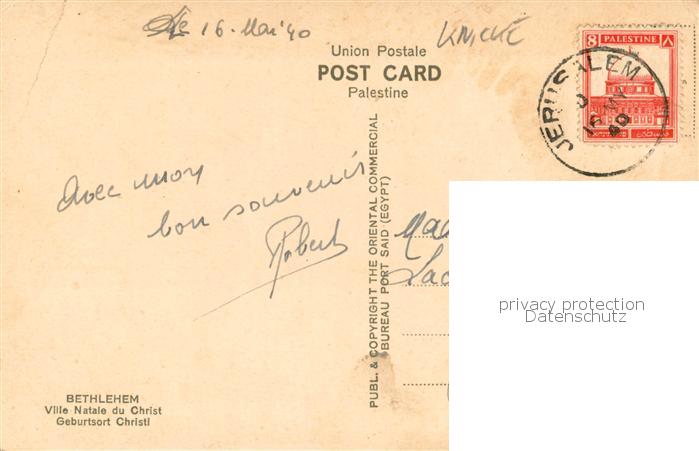 Le 16. Mai 40
KNICKE
Union Postale
POST CARD
Palestine
8 PALESTINE ٨
فلسطين
JERUSALEM
16 MY
40
Avec mon
bon souvenir
Robert
PUBL. & COPYRIGHT THE ORIENTAL COMMERCIAL
BUREAU PORT SAID (EGYPT)
privacy protection
Datenschutz
BETHLEHEM
Ville Natale du Christ
Geburtsort Christi